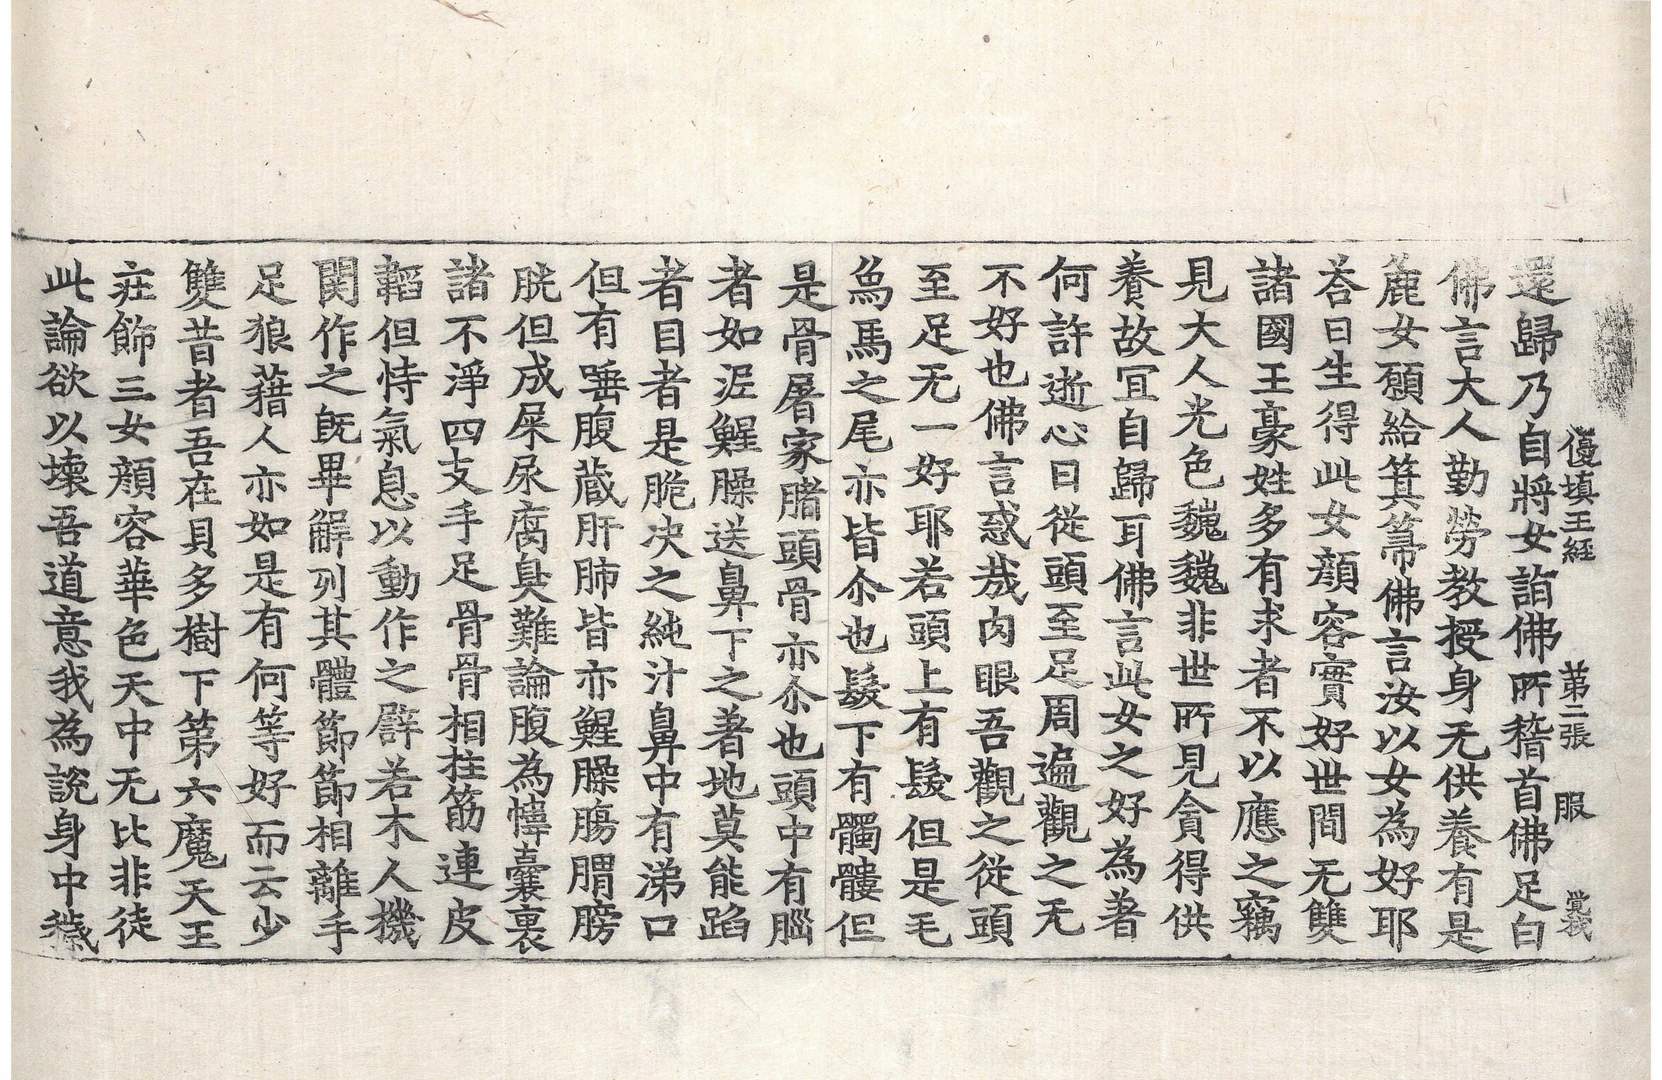 優填王経 第二張 服 覚我
還歸乃自將女詣佛所稽首佛足白
佛言大人勤勞教授身无供養有是
麁女願給箕箒佛言汝以女為好耶
荅曰生得此女顔容實好世間无雙
諸國王豪姓多有求者不以應之竊
見大人光色巍巍非世所見貪得供
養故冝自歸耳佛言此女之好為著
何許逝心曰從頭至足周遍觀之无
不好也佛言惑㦲肉眼吾觀之從頭
至足无一好耶若頭上有髮但是毛
𤉷馬之尾亦皆尒也髮下有髑髏但
是骨屠家膡頭骨亦尒也頭中有腦
者如泥鯹臊送鼻下之著地莫能蹈
者目者是脆决之純汁鼻中有涕口
但有唾腹蔵肝肺皆亦鯹臊膓胃膀
胱但成屎尿腐臭難論腹為㡧囊裹
諸不淨四支手足骨骨相拄筋連皮
韜但恃氣息以動作之譬若木人機
関作之既畢解列其體節節相離手
足狼藉人亦如是有何等好而云少
雙昔者吾在貝多樹下第六魔天王
莊飾三女顔容華色天中无比非徒
此論欲以壊吾道意我為説身中穢